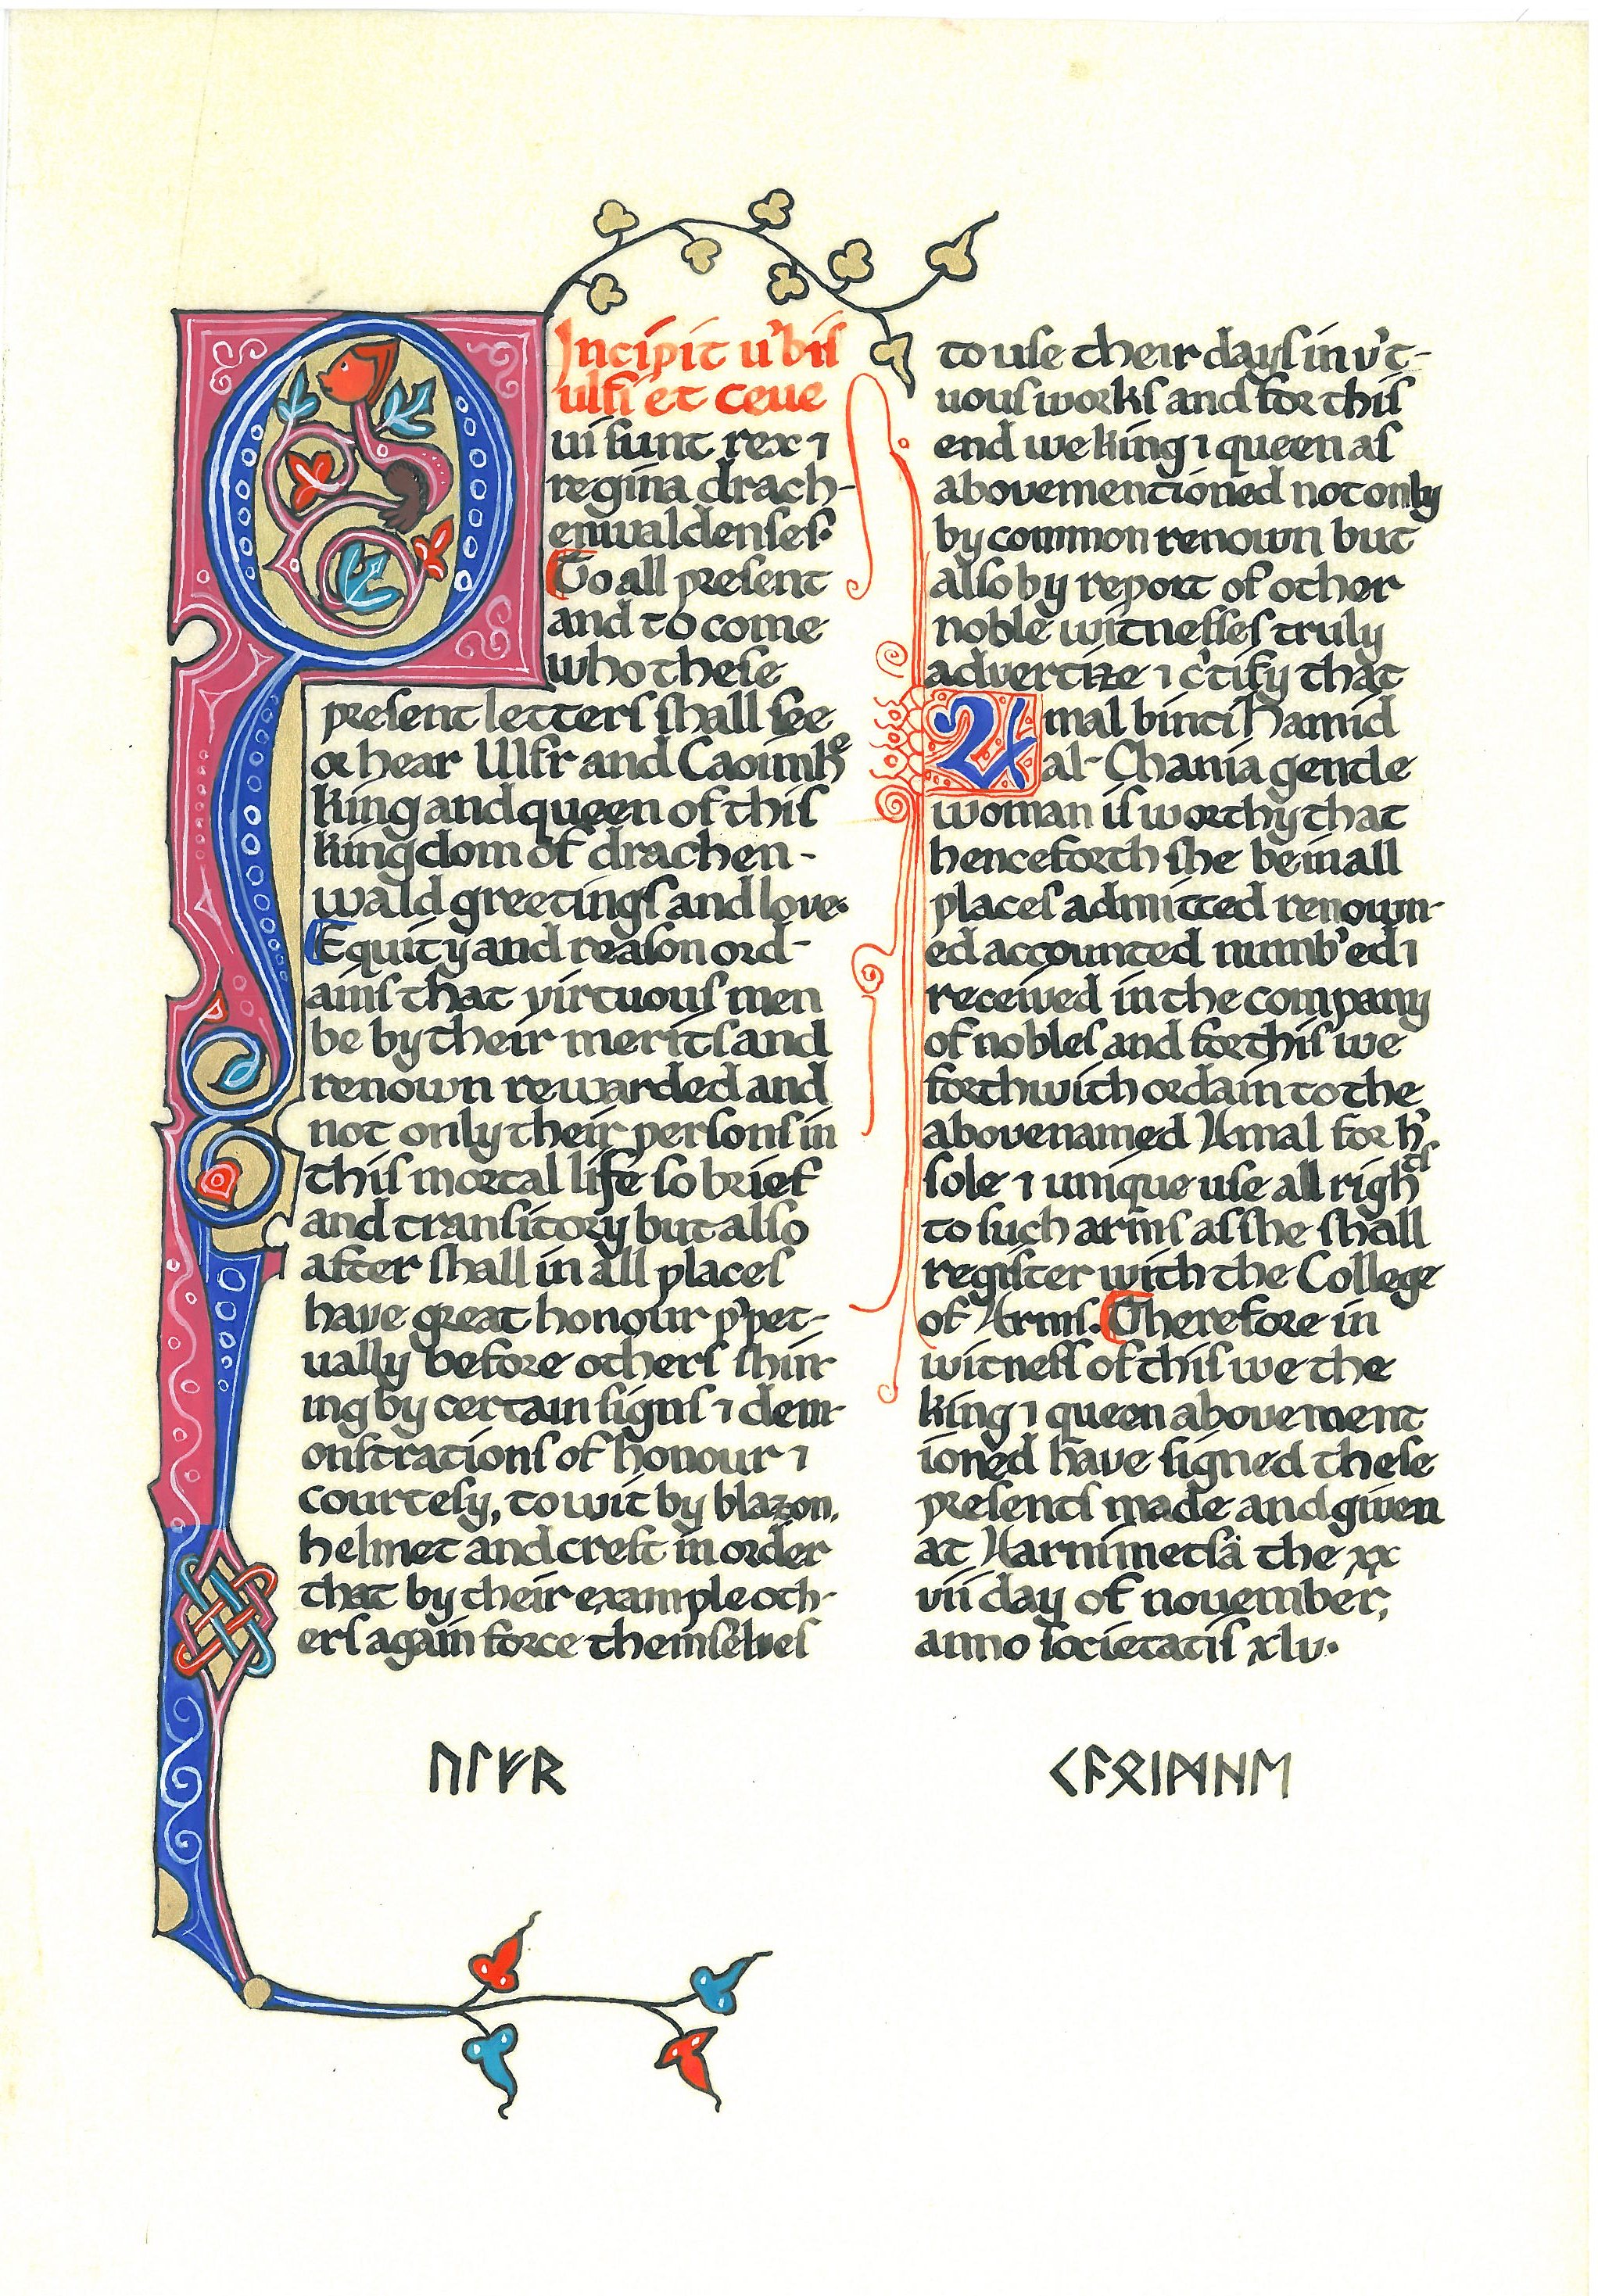 Incipit u'bis
ulfi et ceue
ui sunt rex ⁊
regina drach-
enwaldenses·
To all present
and to come
who these
present letters shall see
or hear Ulfr and Caoimhe
king and queen of this
kingdom of drachen-
wald greetings and love·
Equity and reason ord-
ains that virtuous men
be by their merits and
renown rewarded and
not only their persons in
this mortal life so brief
and transitory but also
after shall in all places
have great honour p'pet-
ually before others shin-
ing by certain signs ⁊ dem-
onstrations of honour ⁊
courtesy, to wit by blazon,
helmet and crest in order
that by their example oth-
ers again force themselves
to use their days in v't-
uous works and for this
end we king ⁊ queen as
abovementioned not only
by common renown but
also by report of other
noble witnesses truly
advertize ⁊ c'tify that
Amal bint iHamid
al-Ghania gentle
woman is worthy that
henceforth she be in all
places admitted renown-
ed accounted numb'ed ⁊
received in the company
of nobles and for this we
forthwith ordain to the
abovenamed Amal for h'
sole ⁊ unique use all rights
to such arms as she shall
register with the College
of Arms. Therefore in
witness of this we the
king ⁊ queen abovement
ioned have signed these
presents made and given
at Karnimetsä the xx
vii day of november,
anno societatis xlv·
ᚢᛚᚠᚱ
ᚲᚨᛟᛁᛗᚺᛖ